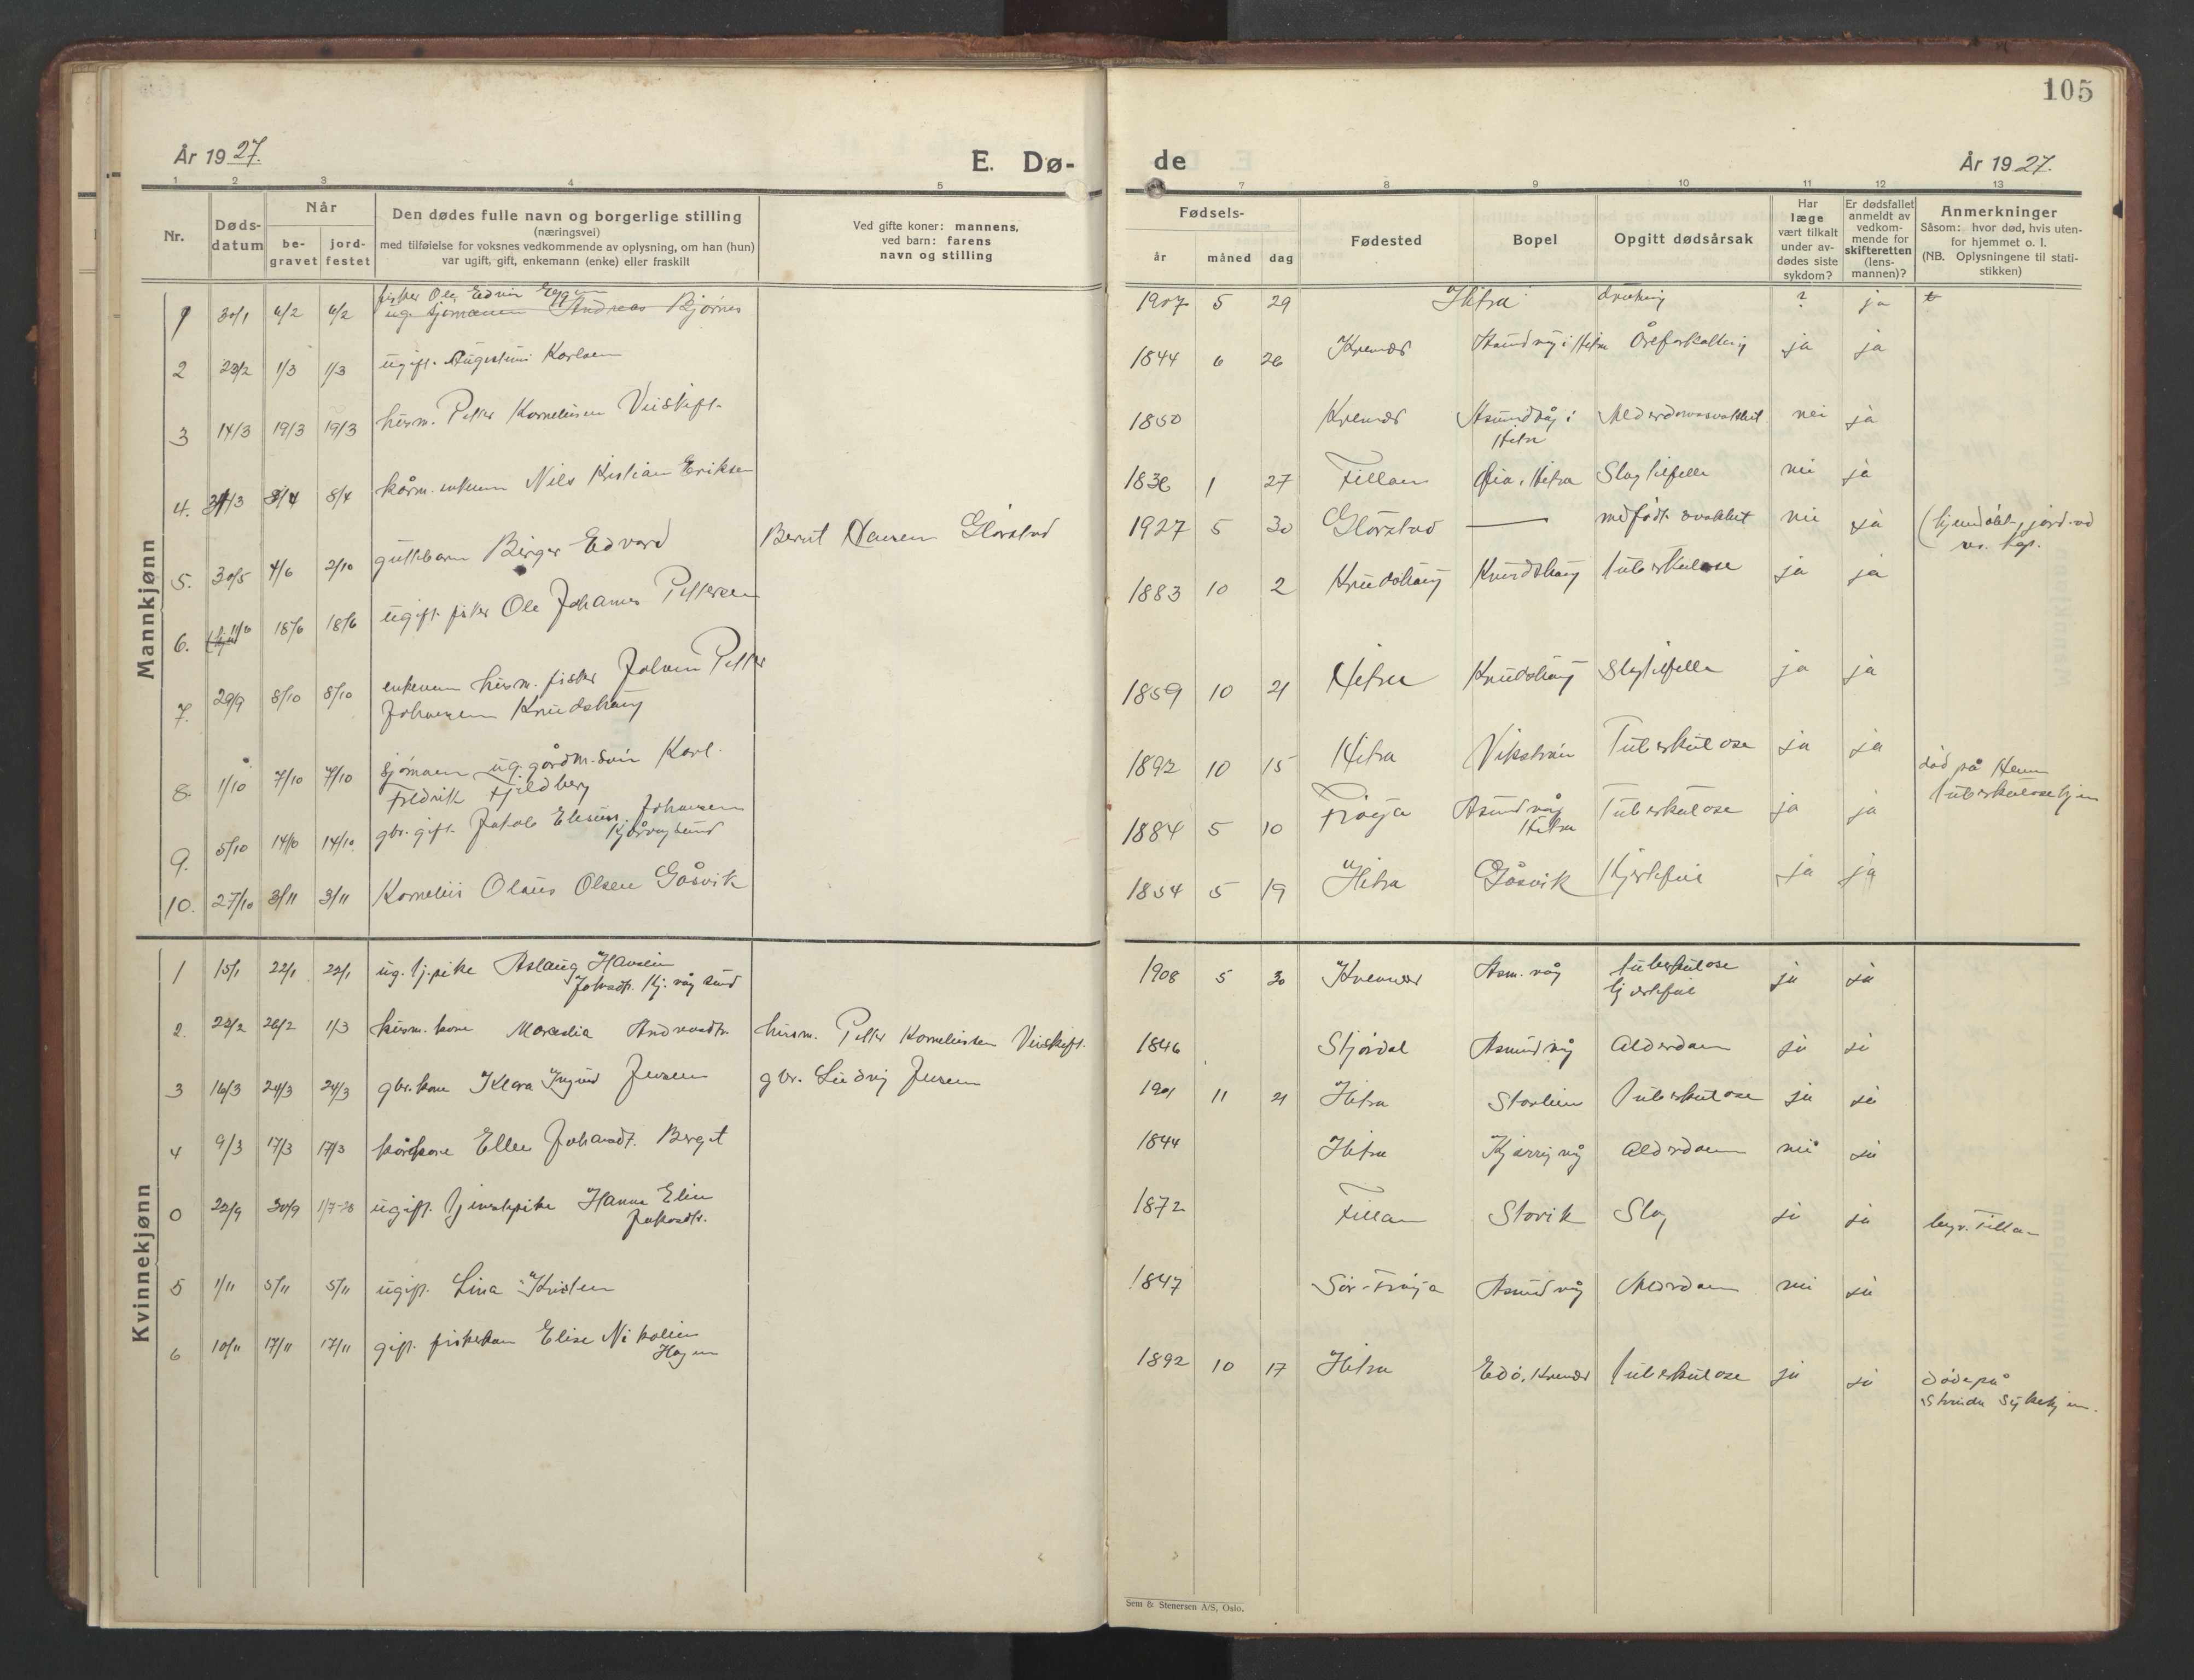 105
År 1927.
E. Dø-
de
År 1927.
1 2 3 4 5 7 8 9 10 11 12 13
Nr.
Døds-
datum
Når
be-
gravet
jord-
festet
Den dødes fulle navn og borgerlige stilling
(næringsvei)
med tilføielse for voksnes vedkommende av oplysning, om han (hun)
var ugift, gift, enkemann (enke) eller fraskilt
Ved gifte koner: mannens,
ved barn: farens
navn og stilling
Fødsels-
år måned dag
Fødested
Bopel
Opgitt dødsårsak
Har
læge
vært tilkalt
under av-
dødes siste
sykdom?
Er dødsfallet
anmeldt av
vedkom-
mende for
skifteretten
(lens-
mannen)?
Anmerkninger
Såsom: hvor død, hvis uten-
for hjemmet o. l.
(NB. Oplysningene til stati-
stikken)
Mannkjønn
fisker Ole Edvin
1 30/1 6/2 6/2 ug. sjømann Andreas Bjørnes 1907 5 29 Hitra drukning ? ja
2 23/2 1/3 1/3 ugift. Augustinus Karlsen 1844 6 26 Kvenvær Åsmundvåg i Hitra Åreforkalkning ja ja
3 14/3 19/3 19/3 husm. Petter Korneliussen Veiskift. 1850 Kvenvær Asmundvåg i
Hitra Alderdomssvakhet nei ja
4. 31/3 8/4 8/4 kårm. enkem Nils Kristian Eriksen 1836 1 27 Fillan Hitra Slagtilfelle nei ja
5. 30/5 4/6 2/10 guttebarn Birger Edvard Bernt Hansen Glørstad 1927 5 30 Glørstad — medfødt svakhet nei ja (hjemdøbt, jord. ved
res. kap.
6. 11/6 18/6 18/6 ugift fisker Ole Johannes Pettersen 1883 10 2 Knudshaug Knudshaug tuberkulose ja ja
7. 29/9 8/10 8/10 enkem husm. fisker Johan Petter
Johansen Knudshaug 1859 10 21 Hitra Knudshaug Slagtilfelle ja ja
8. 1/10 7/10 7/10 sjømann ug. gårdm. sønn Karl
Fredrik Fjeldberg 1892 10 15 Hitra Vikstrøm Tuberkulose ja ja død på Hemn
tuberkulosehjem
9. 5/10 14/10 14/10 gbr. gift. Jakob Eliseus Johansen
Kjørvågsund 1884 5 10 Frøya Asmundvåg
Hitra Tuberkulose ja ja
10. 27/10 3/11 3/11 Kornelius Olaus Olsen Gåsvik 1854 5 19 Hitra Gåsvik Hjertefeil ja ja
Kvinnekjønn
1 15/1 22/1 22/1 ug. tj.pike Aslaug Hansine
Johsdtr. Kj. våg sund 1908 5 30 Kvenvær Asm. våg tuberkulose
hjertefeil ja ja
2. 22/2 26/2 1/3 husm. kone Marselia Andreasdtr. husm. Petter Korneliussen Veiskift. 1846 Stjørdal Asmundvåg Alderdom ja ja
3 16/3 24/3 24/3 gbr. kone Klara Ingrid Jensen gbr. Ludvig Jensen 1901 11 21 Hitra Storlien Tuberkulose ja ja
4 9/3 17/3 17/3 kårkone Ellen Johansdt. Berget 1844 Hitra Kjerringvåg Alderdom nei ja
0 22/9 30/9 1/7-28 ugift. tjenestepike Hanna Elen
Jakobsdtr. 1872 Fillan Storvik Slag ja ja begr. Fillan
5 1/11 5/11 5/11 ugift. Lina Kristen 1847 Sør-Frøya Asmundvåg Alderdom nei ja
6 10/11 17/11 17/11 gift. fiskerkone Elise Nikoline
Hagen 1892 10 17 Hitra Edø, Kvenvær tuberkulose ja ja døde på
Strinda Sykehjem.
Sem & Stenersen A/S, Oslo.